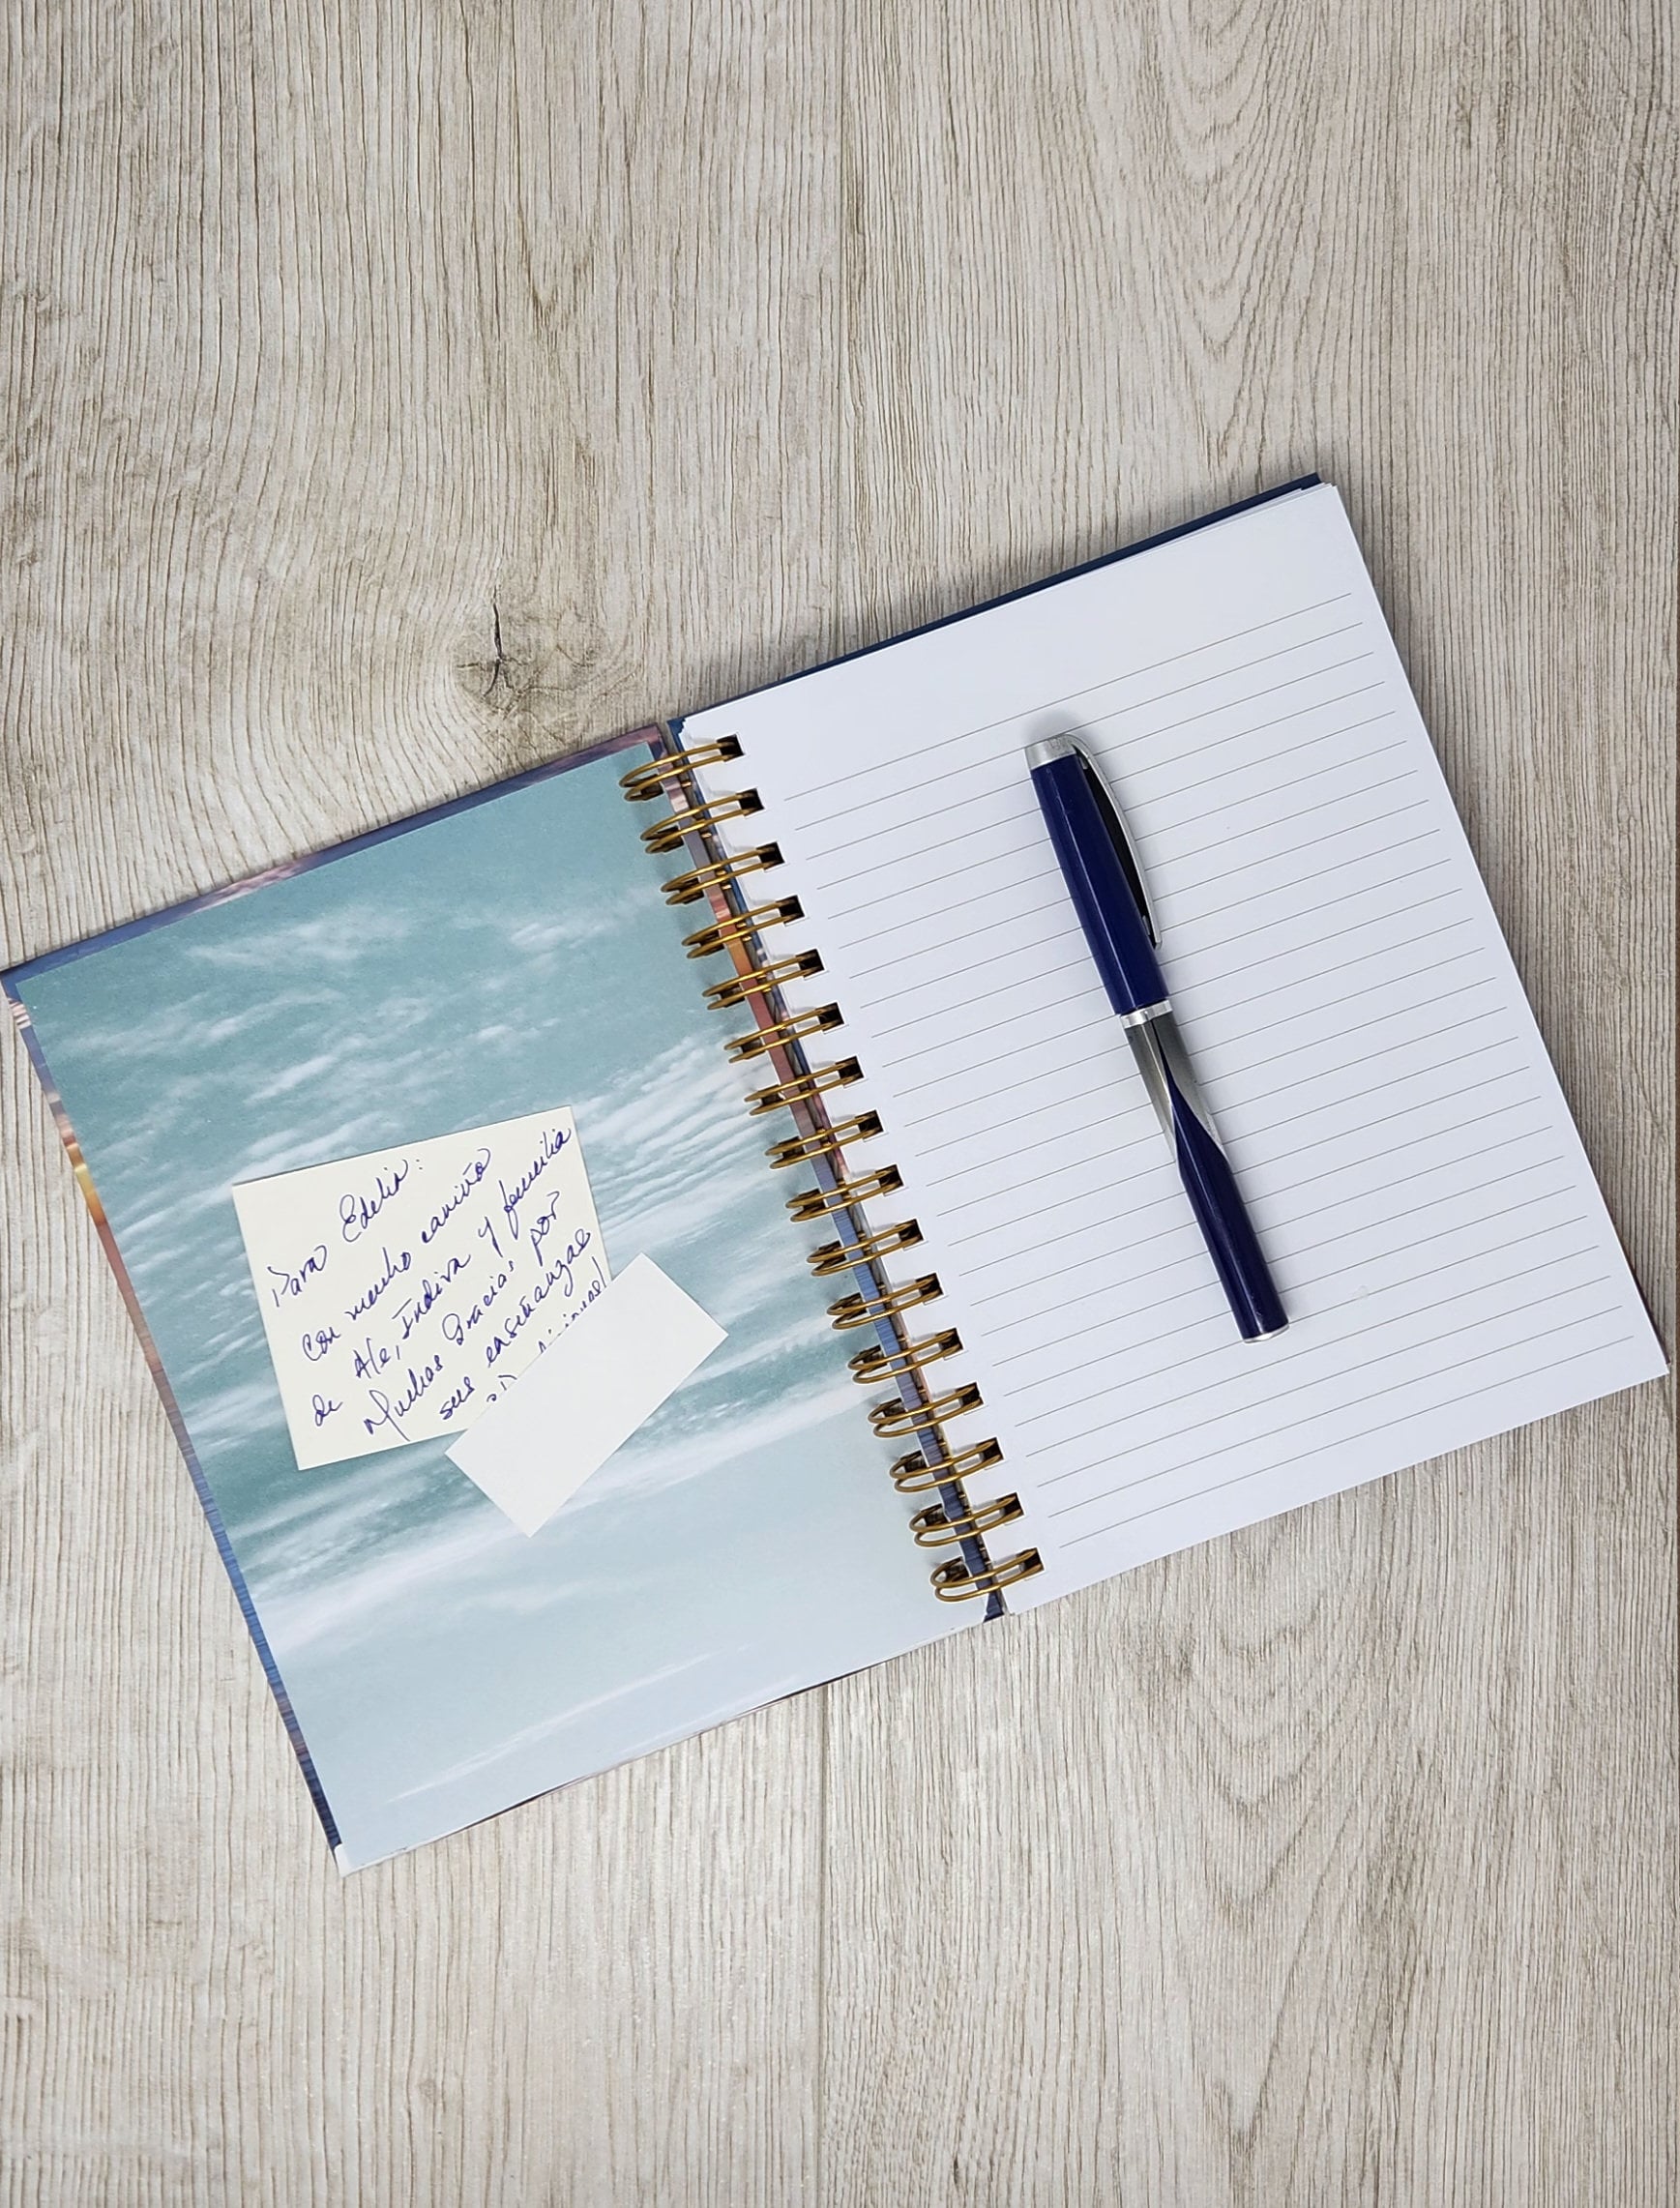 Para Edelia:
Con mucho cariño
de Ale, Indira y familia
Muchas Gracias por
sus enseñanzas